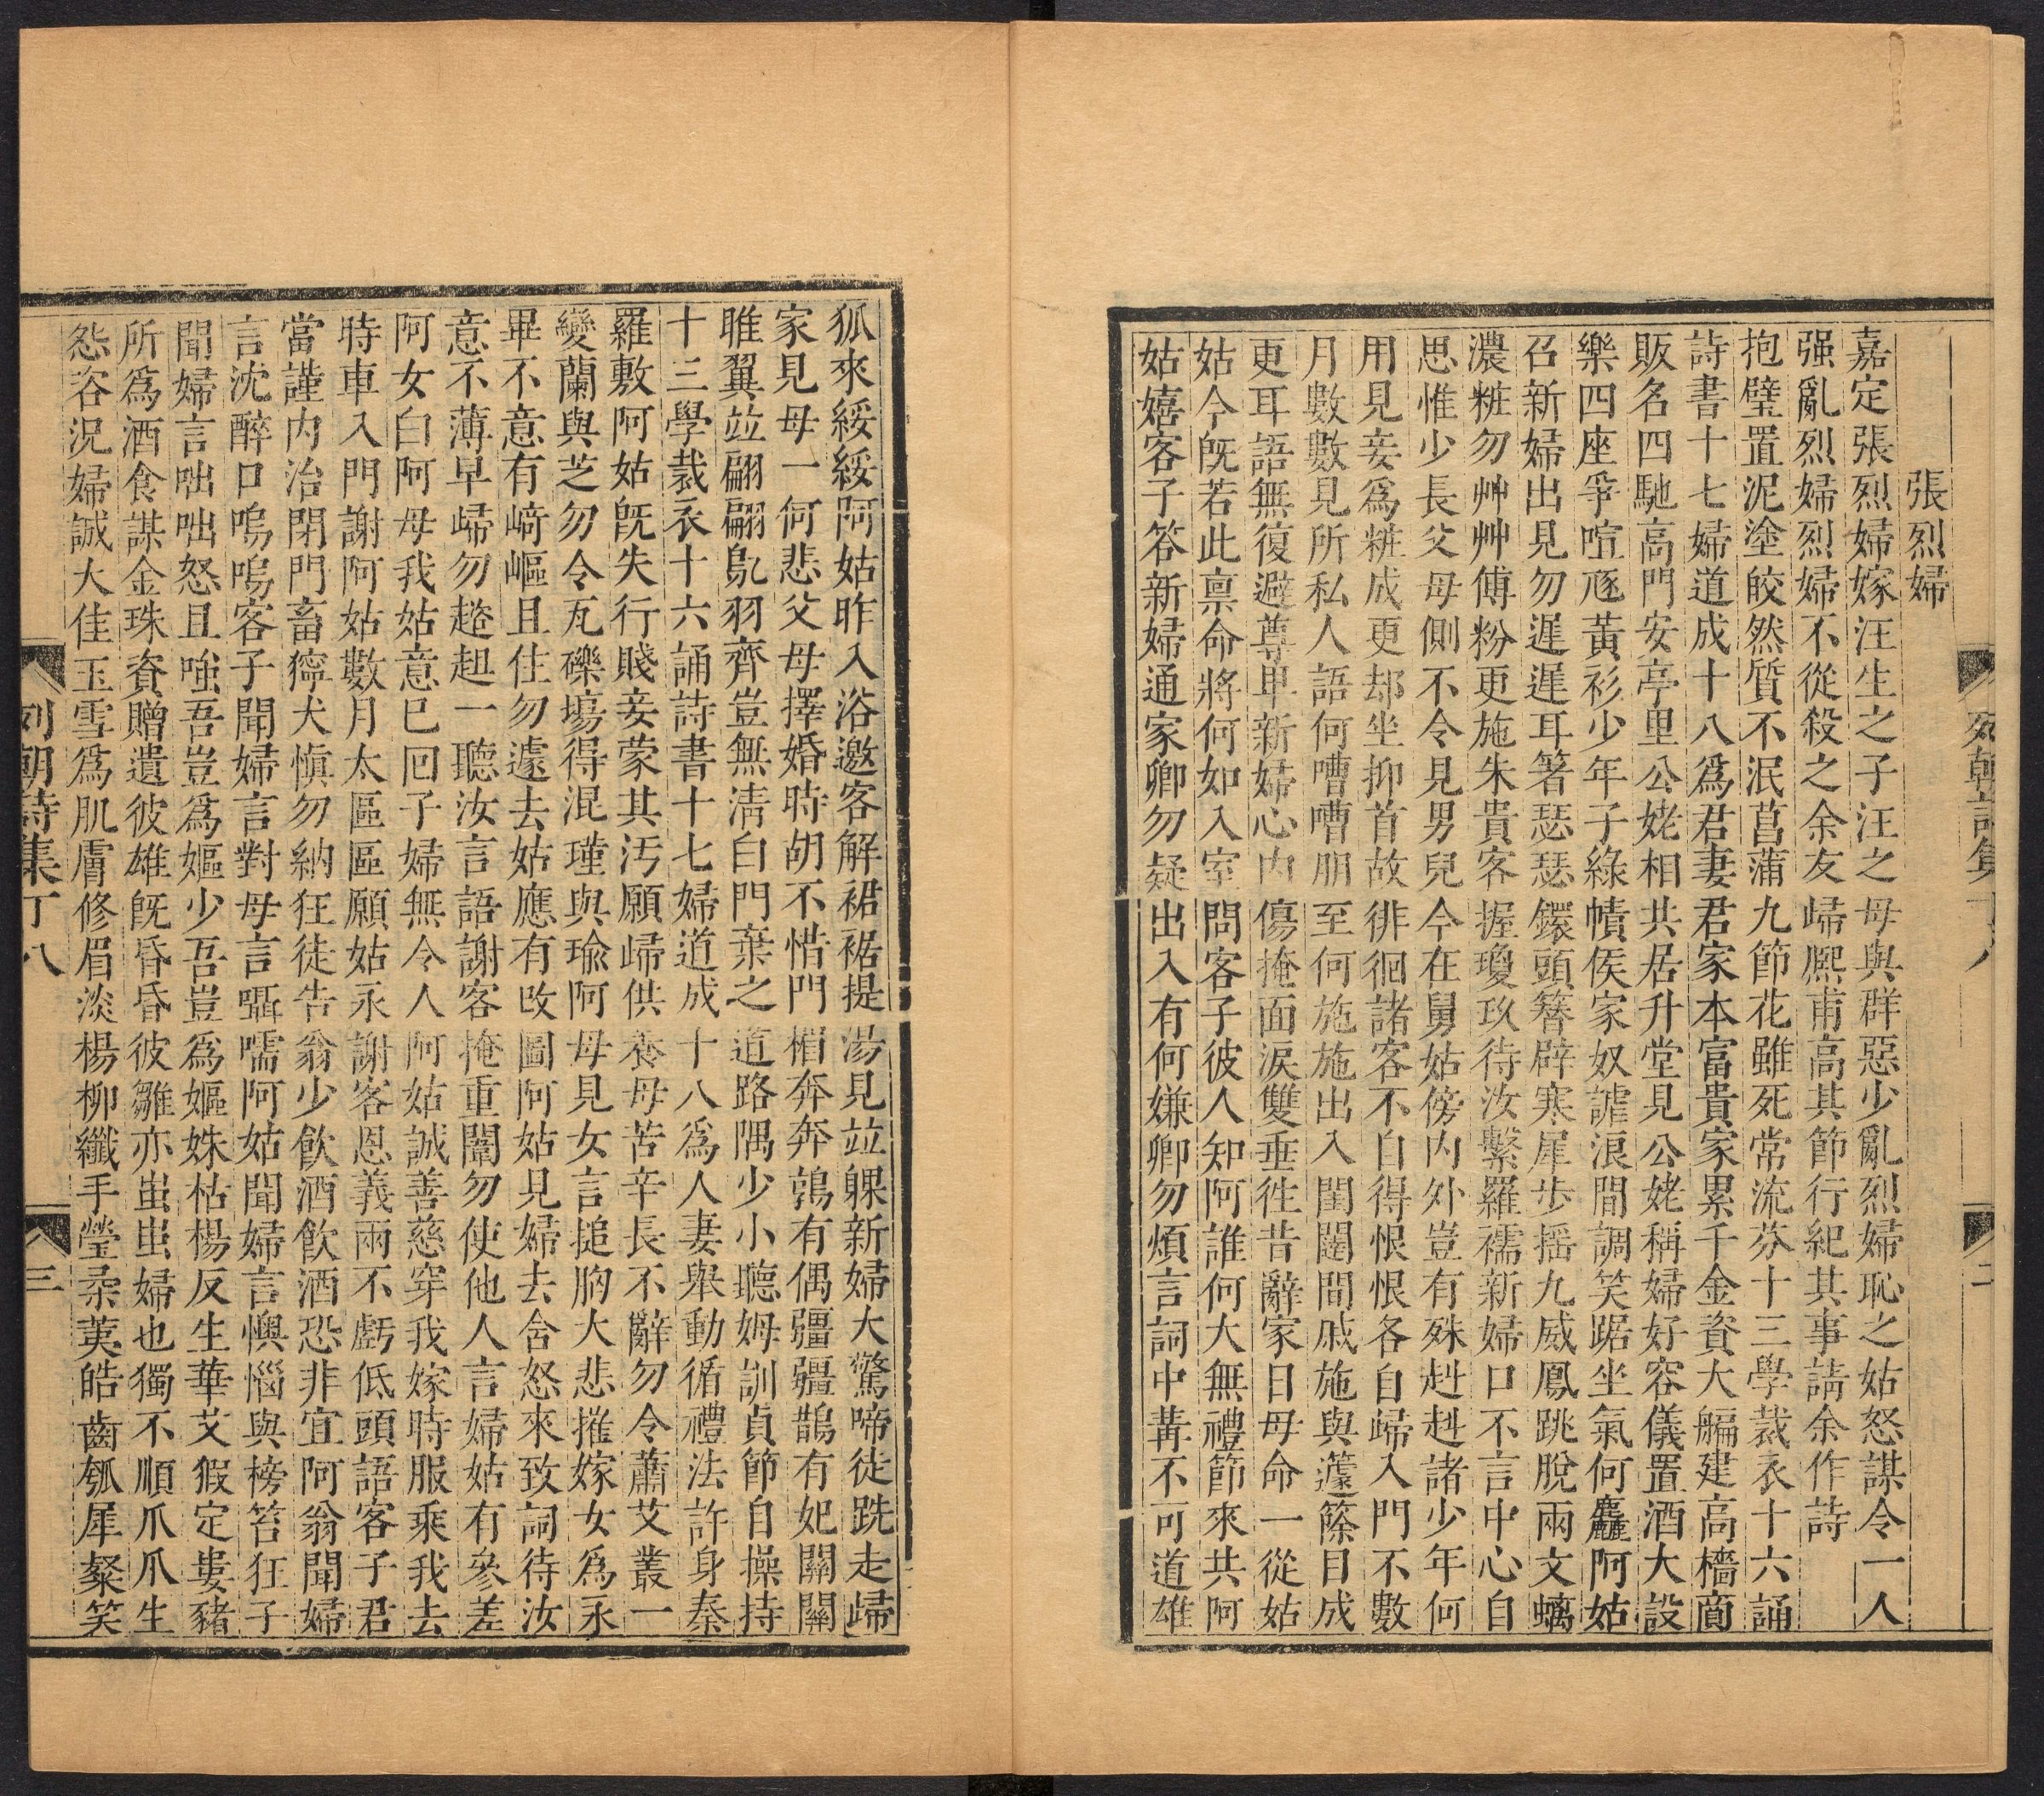 列朝詩集丁八
二
張烈婦
嘉定張烈婦嫁汪生之子汪之母與群惡少亂烈婦恥之姑怒謀令一人
强亂烈婦烈婦不從殺之余友歸熙甫高其節行紀其事請余作詩
抱璧置泥塗皎然質不泯菖蒲九節花雖死常流芬十三學裁衣十六誦
詩書十七婦道成十八爲君妻君家本富貴家累千金資大艑建高檣商
販名四馳高門安亭里公姥相共居升堂見公姥稱婦好容儀置酒大設
樂四座爭喧豗黃衫少年子綠幘侯家奴謔浪間調笑踞坐氣何麤阿姑
召新婦出見勿遲遲耳箸瑟瑟鐶頭簪辟寒犀步摇九威鳳跳脫兩文螭
濃粧勿艸艸傅粉更施朱貴客握瓊玖待汝繫羅襦新婦口不言中心自
思惟少長父母側不令見男兒今在舅姑傍内外豈有殊赳赳諸少年何
用見妾爲粧成更却坐抑首故徘徊諸客不自得恨恨各自歸入門不數
月數數見所私人語何嘈嘈朋至何施施出入閨闥間戚施與籧篨目成
更耳語無復避尊卑新婦心内傷掩面淚雙垂徃昔辭家日母命一從姑
姑今旣若此禀命將何如入室問客子彼人知阿誰何大無禮節來共阿
姑嬉客子答新婦通家卿勿疑出入有何嫌卿勿煩言詞中冓不可道雄
狐來綏綏阿姑昨入浴邀客解裙裾提湯見竝躶新婦大驚啼徒跣走歸
家見母一何悲父母擇婚時胡不惜門楣奔奔鶉有偶彊彊鵲有妃關關
雎翼竝翩翩鳬羽齊豈無淸白門棄之道路隅少小聽姆訓貞節自操持
十三學裁衣十六誦詩書十七婦道成十八爲人妻舉動循禮法許身秦
羅敷阿姑旣失行賤妾蒙其汚願歸供養母苦辛長不辭勿令蕭艾叢一
變蘭與芝勿令瓦礫場得混瑾與瑜阿母見女言搥胸大悲摧嫁女爲永
畢不意有﨑嶇且住勿遽去姑應有改圖阿姑見婦去含怒來致詞待汝
意不薄早歸勿趑趄一聽汝言語謝客掩重闈勿使他人言婦姑有參差
阿女白阿母我姑意已回子婦無令人阿姑誠善慈穿我嫁時服乘我去
時車入門謝阿姑數月太區區願姑永謝客恩義兩不虧低頭語客子君
當謹内治閉門畜獰犬愼勿納狂徒告翁少飮酒飮酒恐非宜阿翁聞婦
言沈醉口嗚嗚客子聞婦言對母言囁嚅阿姑聞婦言懊惱與榜笞狂子
聞婦言咄咄怒且嗤吾豈爲嫗少吾豈爲嫗姝枯楊反生華艾猳定婁豬
所爲酒食謀金珠資贈遺彼雄旣昏昏彼雛亦蚩蚩婦也獨不順爪爪生
怨咨况婦誠大佳玉雪爲肌膚修眉淡楊柳纖手瑩柔荑皓齒瓠犀粲笑
列朝詩集丁八
三